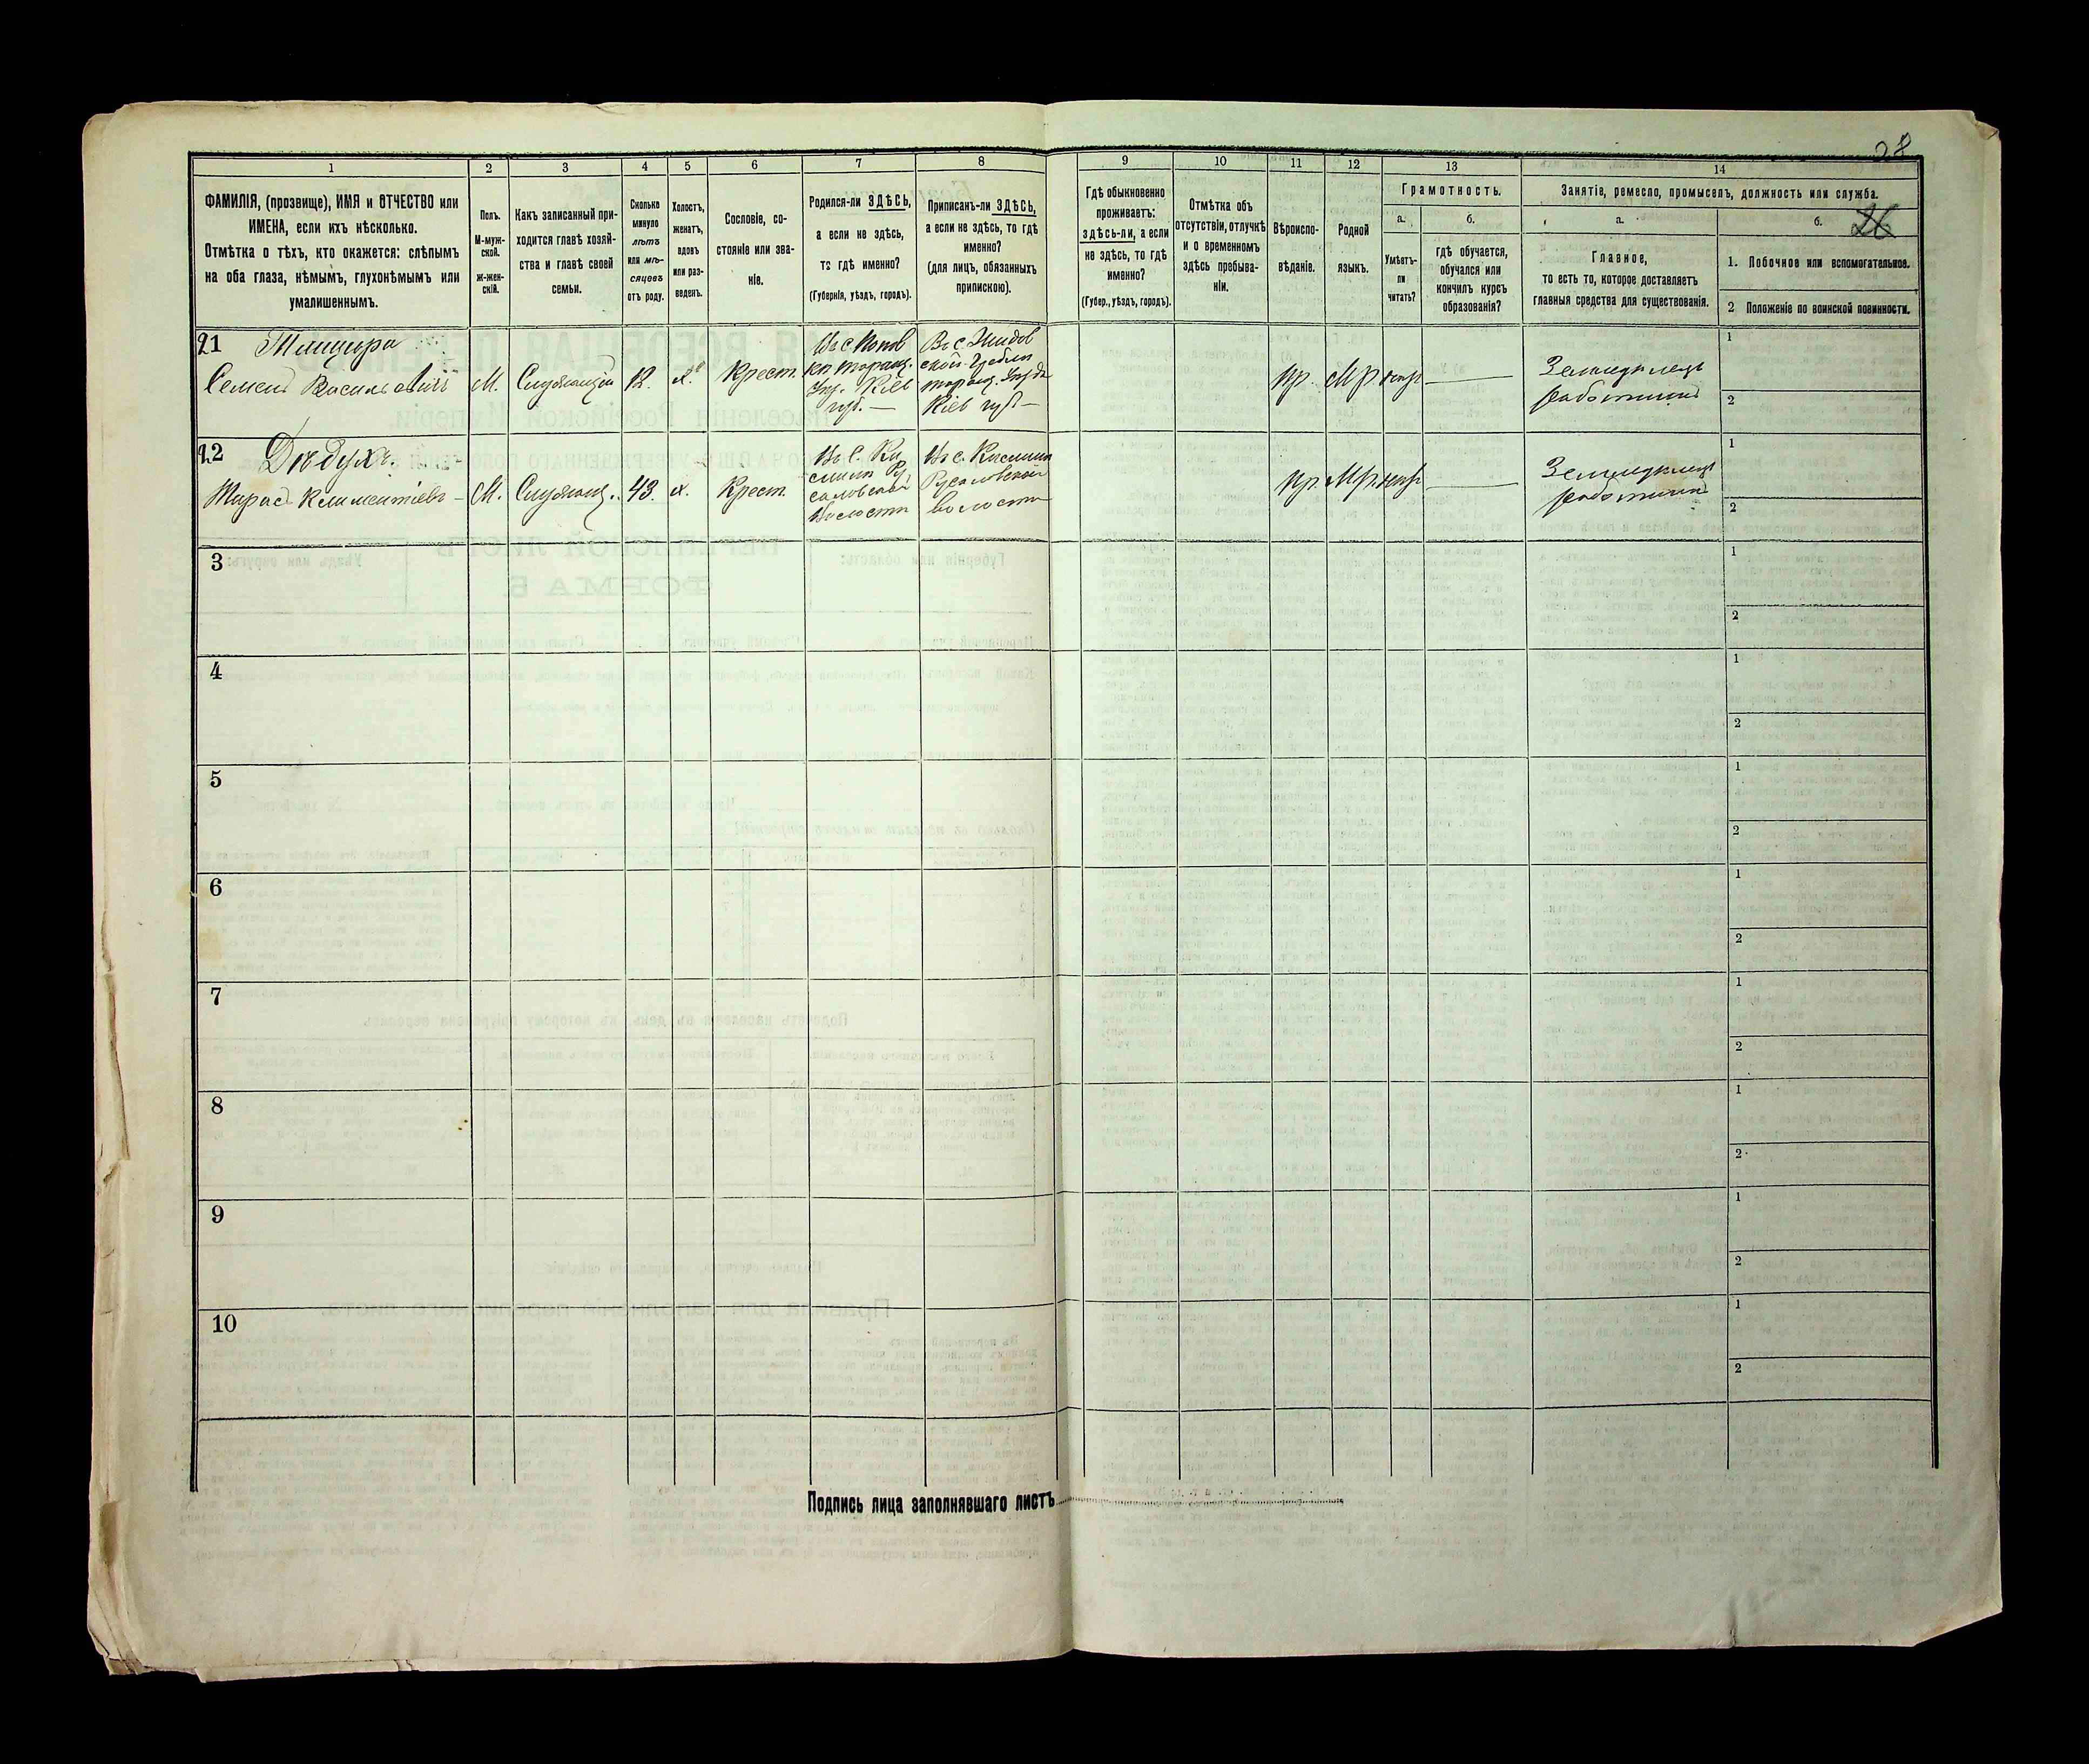 28
1 2 3 4 5 6 7 8 9 10 11 12 13 14
ФАМИЛІЯ, (прозвище), ИМЯ и ОТЧЕСТВО или
ИМЕНА, если ихъ нѣсколько.
Отмѣтка о тѣхъ, кто окажется: слѣпымъ
на оба глаза, нѣмымъ, глухонѣмымъ или
умалишеннымъ.
Полъ.
М-муж-
ской.
ж-жен-
скій.
Какъ записанный при-
ходится главѣ хозяй-
ства и главѣ своей
семьи.
Сколько
минуло
лѣтъ
или мѣ-
сяцевъ
отъ роду.
Холостъ,
женатъ,
вдовъ
или раз-
веденъ.
Сословіе, со-
стояніе или зва-
ніе.
Родился-ли ЗДѢСЬ,
а если не здѣсь,
то гдѣ именно?
(Губернія, уѣздъ, городъ).
Приписанъ-ли ЗДѢСЬ,
а если не здѣсь, то гдѣ
именно?
(для лицъ, обязанныхъ
припискою).
Гдѣ обыкновенно
проживаетъ:
здѣсь-ли, а если
не здѣсь, то гдѣ
именно?
(Губер., уѣздъ, городъ).
Отмѣтка объ
отсутствіи, отлучкѣ
и о временномъ
здѣсь пребыва-
ніи.
Вѣроиспо-
вѣданіе.
Родной
языкъ.
Грамотность.
а.
Умѣетъ-
ли
читать?
б.
гдѣ обучается,
обучался или
кончилъ курсъ
образованія?
Занятіе, ремесло, промыселъ, должность или служба.
а.
Главное,
то есть то, которое доставляетъ
главныя средства для существованія.
б. 26
1. Побочное или вспомогательное.
2 Положеніе по воинской повинности.
21
Семенъ Васильевичъ
М.
Служащій
12.
х.
Крест.
Кіев
губ. —
Кіев губ —
пр.
Мр
негр
Земледѣлецъ
работникъ
1
2
22 Дѣдухъ.
Климентіевъ
М.
Служащ.
43.
х.
Крест.
волости
волости
пр
Мр.
негр
Земледѣлецъ
работникъ
1
2
3
1
2
4
1
2
5
1
2
6
1
2
7
1
2
8
1
2
9
1
2
10
1
2
Подпись лица заполнявшаго листъ